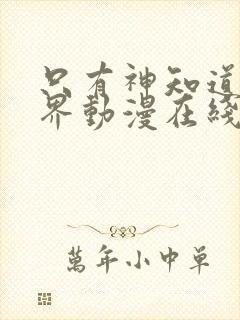 只有神知道
界動漫在綫
萬年小中單